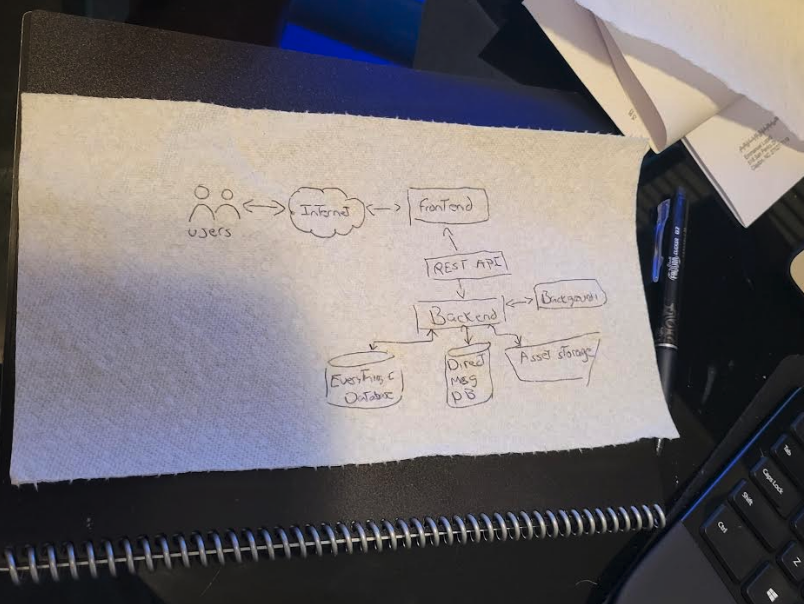 users
Internet
Frontend
REST API
Backend
Background
Database
Direct
Msg
DB
Asset storage
Tab
Caps Lock
Shift
Ctrl
Z